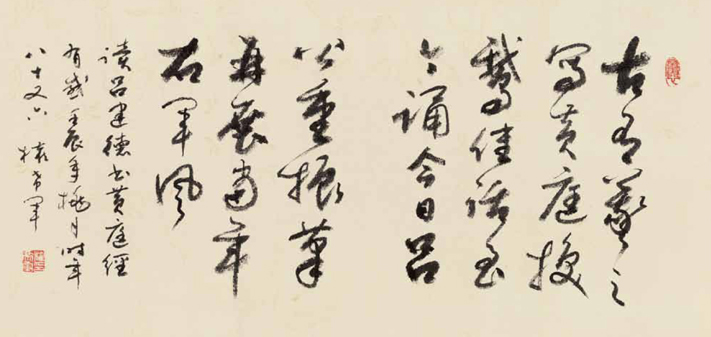 古有羲之
写黄庭换
鹅佳话至
今诵今日吕
公重振笔
再展当年
右军风
读吕建德书黄庭經
有感壬辰年桃月时年
八十又六